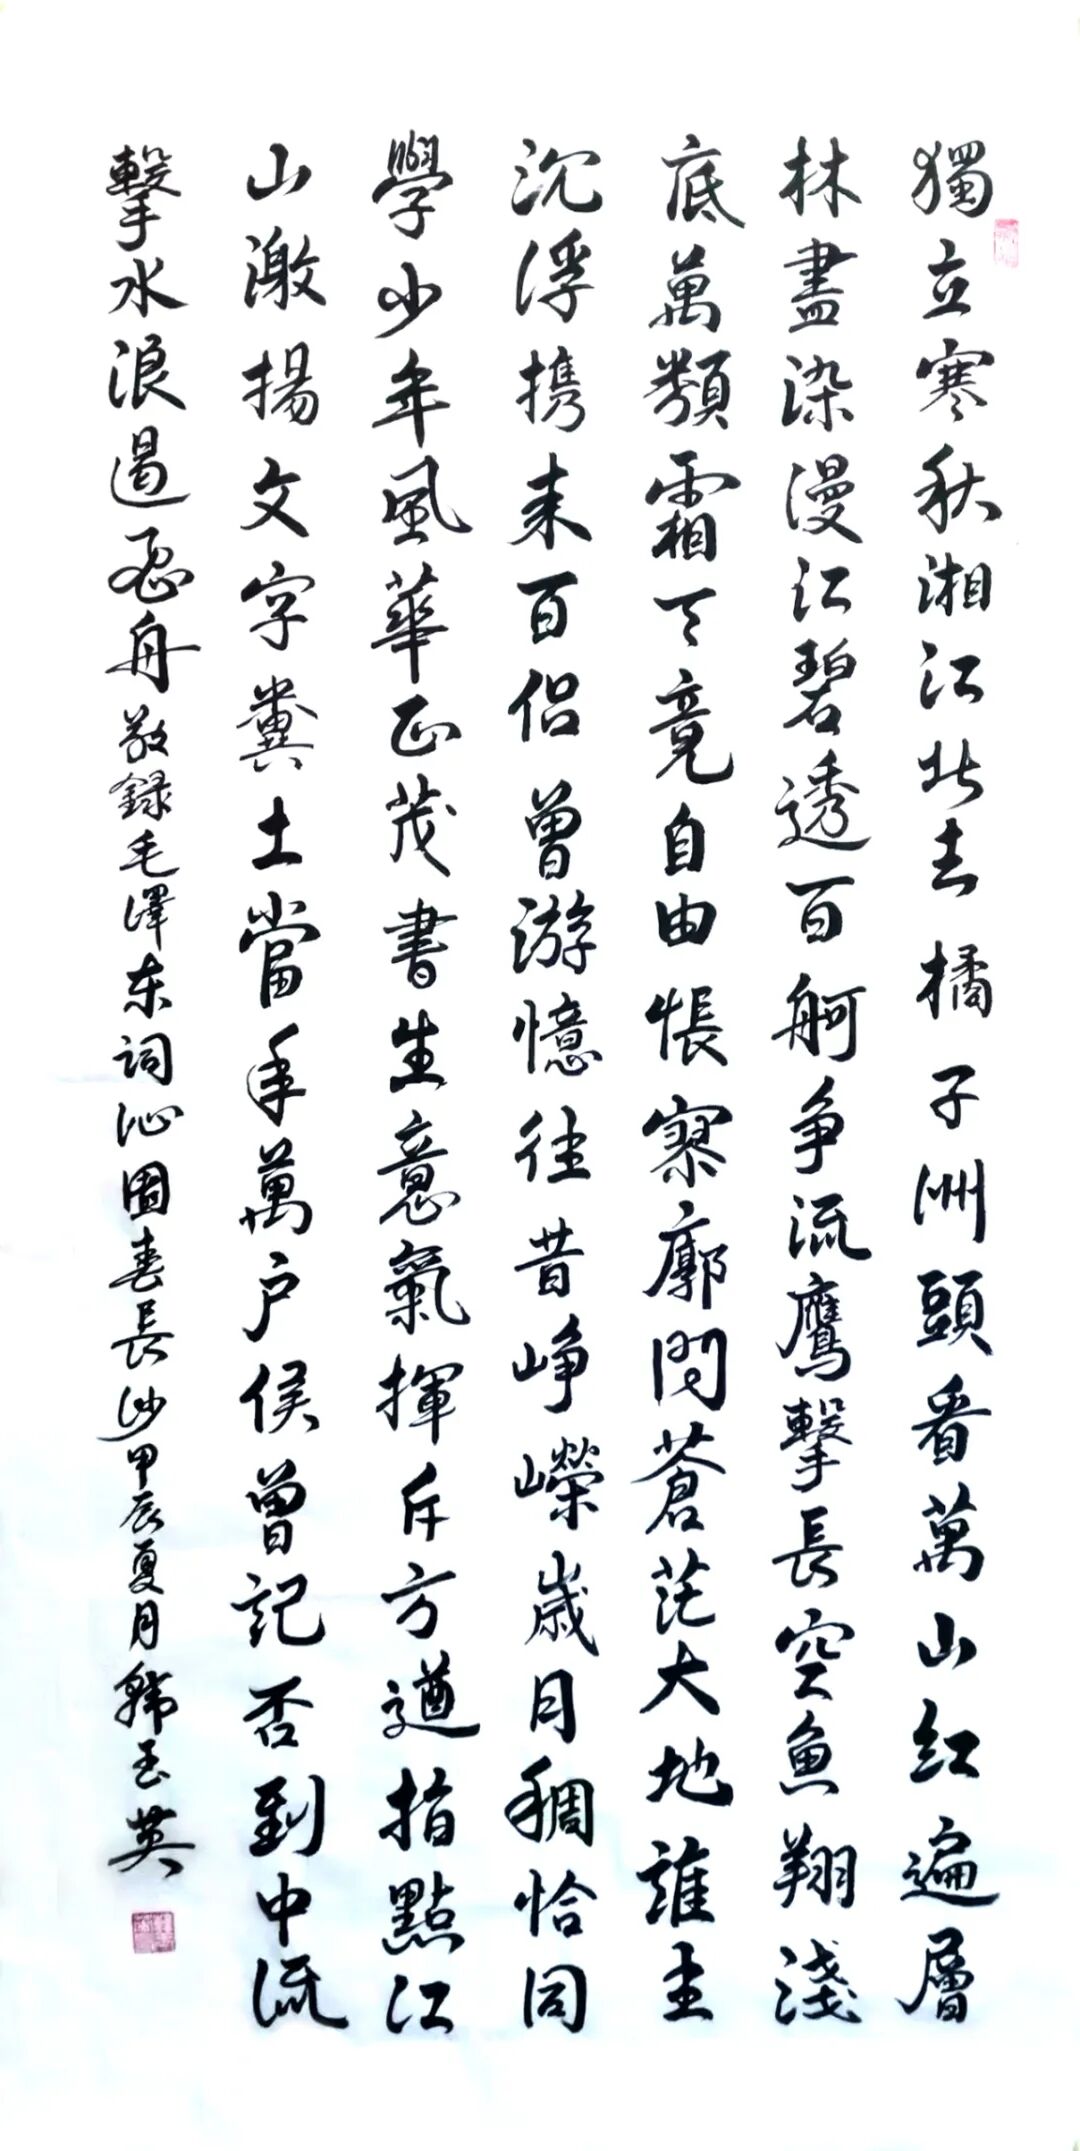 獨立寒秋湘江北去橘子洲頭看萬山紅遍層
林盡染漫江碧透百舸争流鷹擊長空魚翔淺
底萬類霜天竟自由悵寥廓問蒼茫大地誰主
沉浮携来百侣曾游憶往昔峥嶸歲月稠恰同
學少年風華正茂書生意氣揮斥方遒指點江
山激揚文字糞土當年萬户侯曾記否到中流
擊水浪遏飛舟敬録毛澤东詞沁園春長沙甲辰夏月韓玉英